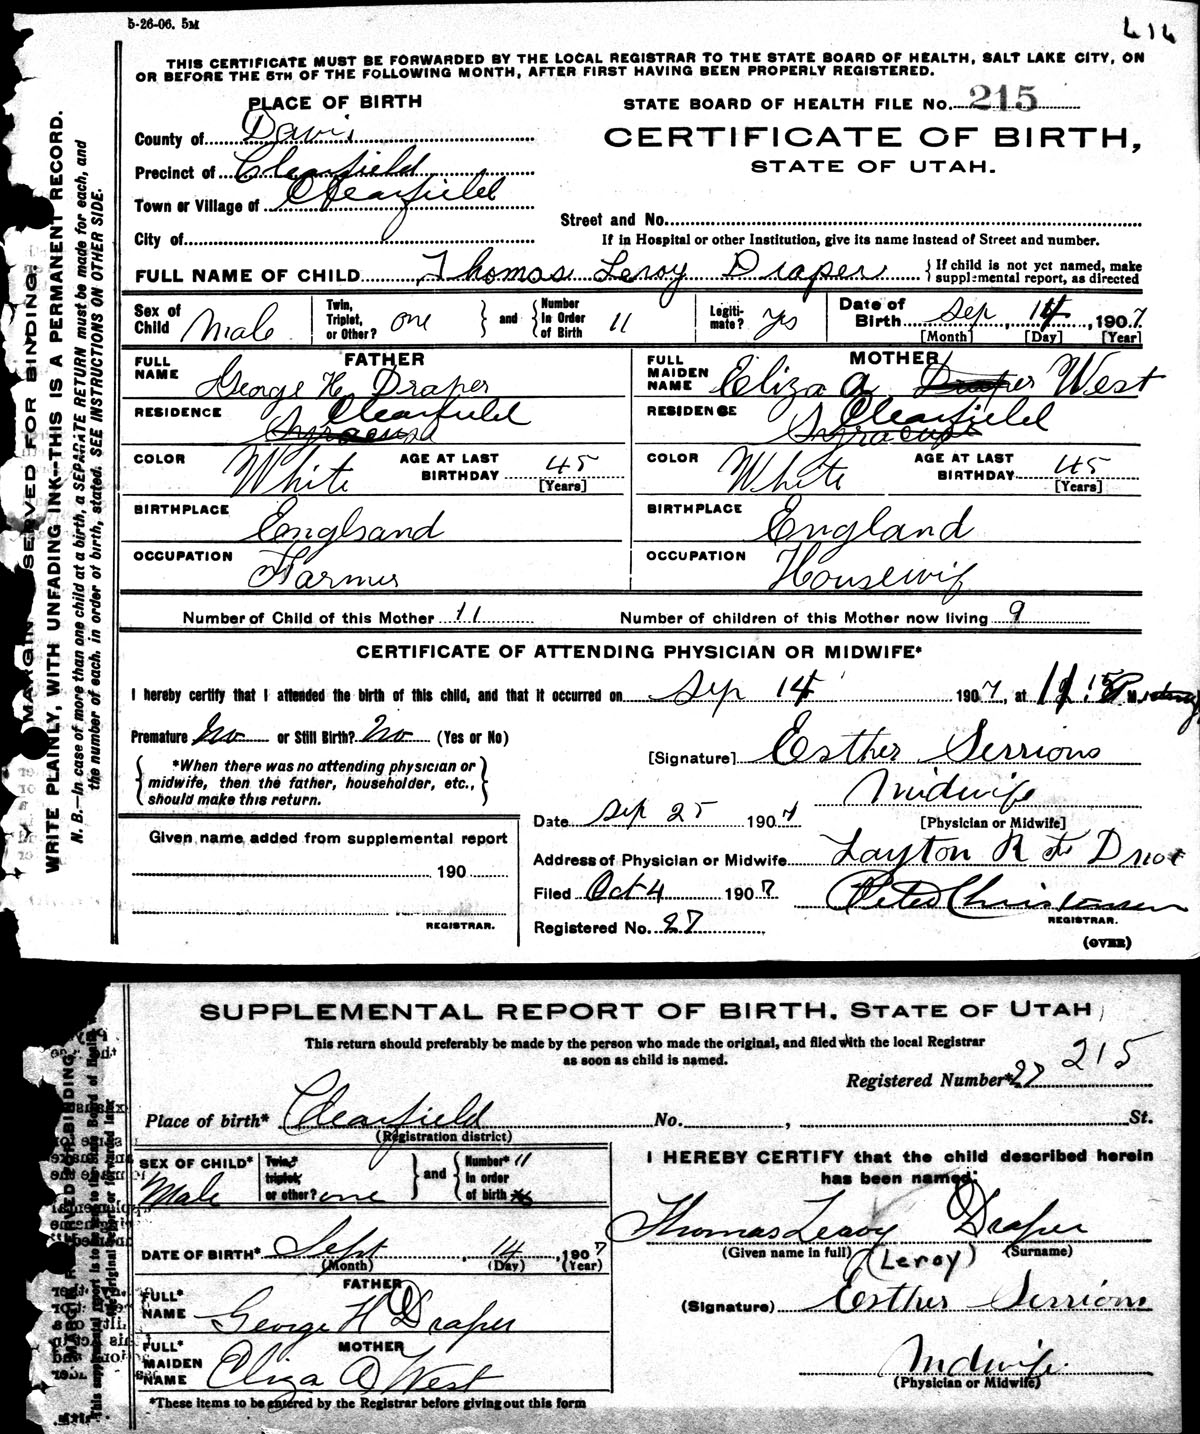 5-26-06. 5M
414
THIS CERTIFICATE MUST BE FORWARDED BY THE LOCAL REGISTRAR TO THE STATE BOARD OF HEALTH, SALT LAKE CITY, ON
OR BEFORE THE 5TH OF THE FOLLOWING MONTH, AFTER FIRST HAVING BEEN PROPERLY REGISTERED.
PLACE OF BIRTH
STATE BOARD OF HEALTH FILE No. 215
County of Davis
CERTIFICATE OF BIRTH,
Precinct of Clearfield
STATE OF UTAH.
Town or Village of Clearfield
Street and No.
City of
If in Hospital or other Institution, give its name instead of Street and number.
FULL NAME OF CHILD Thomas Leroy Draper { If child is not yet named, make
supplemental report, as directed
Sex of Child Male
Twin, Triplet, or Other? one } and { Number In Order of Birth 11
Legiti- mate? Yes
Date of Birth Sep, 14, 1907.
[Month] [Day] [Year]
FATHER
FULL NAME George H. Draper
RESIDENCE Clearfield
Syracuse
COLOR White AGE AT LAST BIRTHDAY 45
[Years]
BIRTHPLACE England
OCCUPATION Farmer
MOTHER
FULL MAIDEN NAME Eliza A Draper West
RESIDENCE Clearfield
Syracuse
COLOR White AGE AT LAST BIRTHDAY 45
[Years]
BIRTHPLACE England
OCCUPATION Housewif
Number of Child of this Mother 11 Number of children of this Mother now living 9
CERTIFICATE OF ATTENDING PHYSICIAN OR MIDWIFE*
I hereby certify that I attended the birth of this child, and that it occurred on Sep 14 1907, at 11.15 P M.
Premature No or Still Birth? No (Yes or No)
[Signature] Esther Serrions
{ *When there was no attending physician or
midwife, then the father, householder, etc.,
should make this return. }
Midwife
[Physician or Midwife]
Date Sep 25 1907
Given name added from supplemental report
190
REGISTRAR.
Address of Physician or Midwife Layton R
Filed Oct 4 1907 Peter Christensen
REGISTRAR.
Registered No. 27
(OVER)
MARGIN RESERVED FOR BINDING
WRITE PLAINLY, WITH UNFADING INK—THIS IS A PERMANENT RECORD.
N. B.—In case of more than one child at a birth, a SEPARATE RETURN must be made for each, and
the number of each, in order of birth, stated. SEE INSTRUCTIONS ON OTHER SIDE.
SUPPLEMENTAL REPORT OF BIRTH, STATE OF UTAH
This return should preferably be made by the person who made the original, and filed with the local Registrar
as soon as child is named.
215
Registered Number* 27
Place of birth* Clearfield No. , St.
(Registration district)
SEX OF CHILD* Male
Twin,* triplet, or other? one } and { Number* 11 In order of birth
DATE OF BIRTH* Sept, 14, 1907
(Month) (Day) (Year)
FATHER
FULL* NAME George H Draper
MOTHER
FULL* MAIDEN NAME Eliza A West
*These items to be entered by the Registrar before giving out this form
I HEREBY CERTIFY that the child described herein
has been named:
Thomas Leroy Draper
(Given name in full) (Surname)
(Leroy)
(Signature) Esther Serrions
Midwife
(Physician or Midwife)